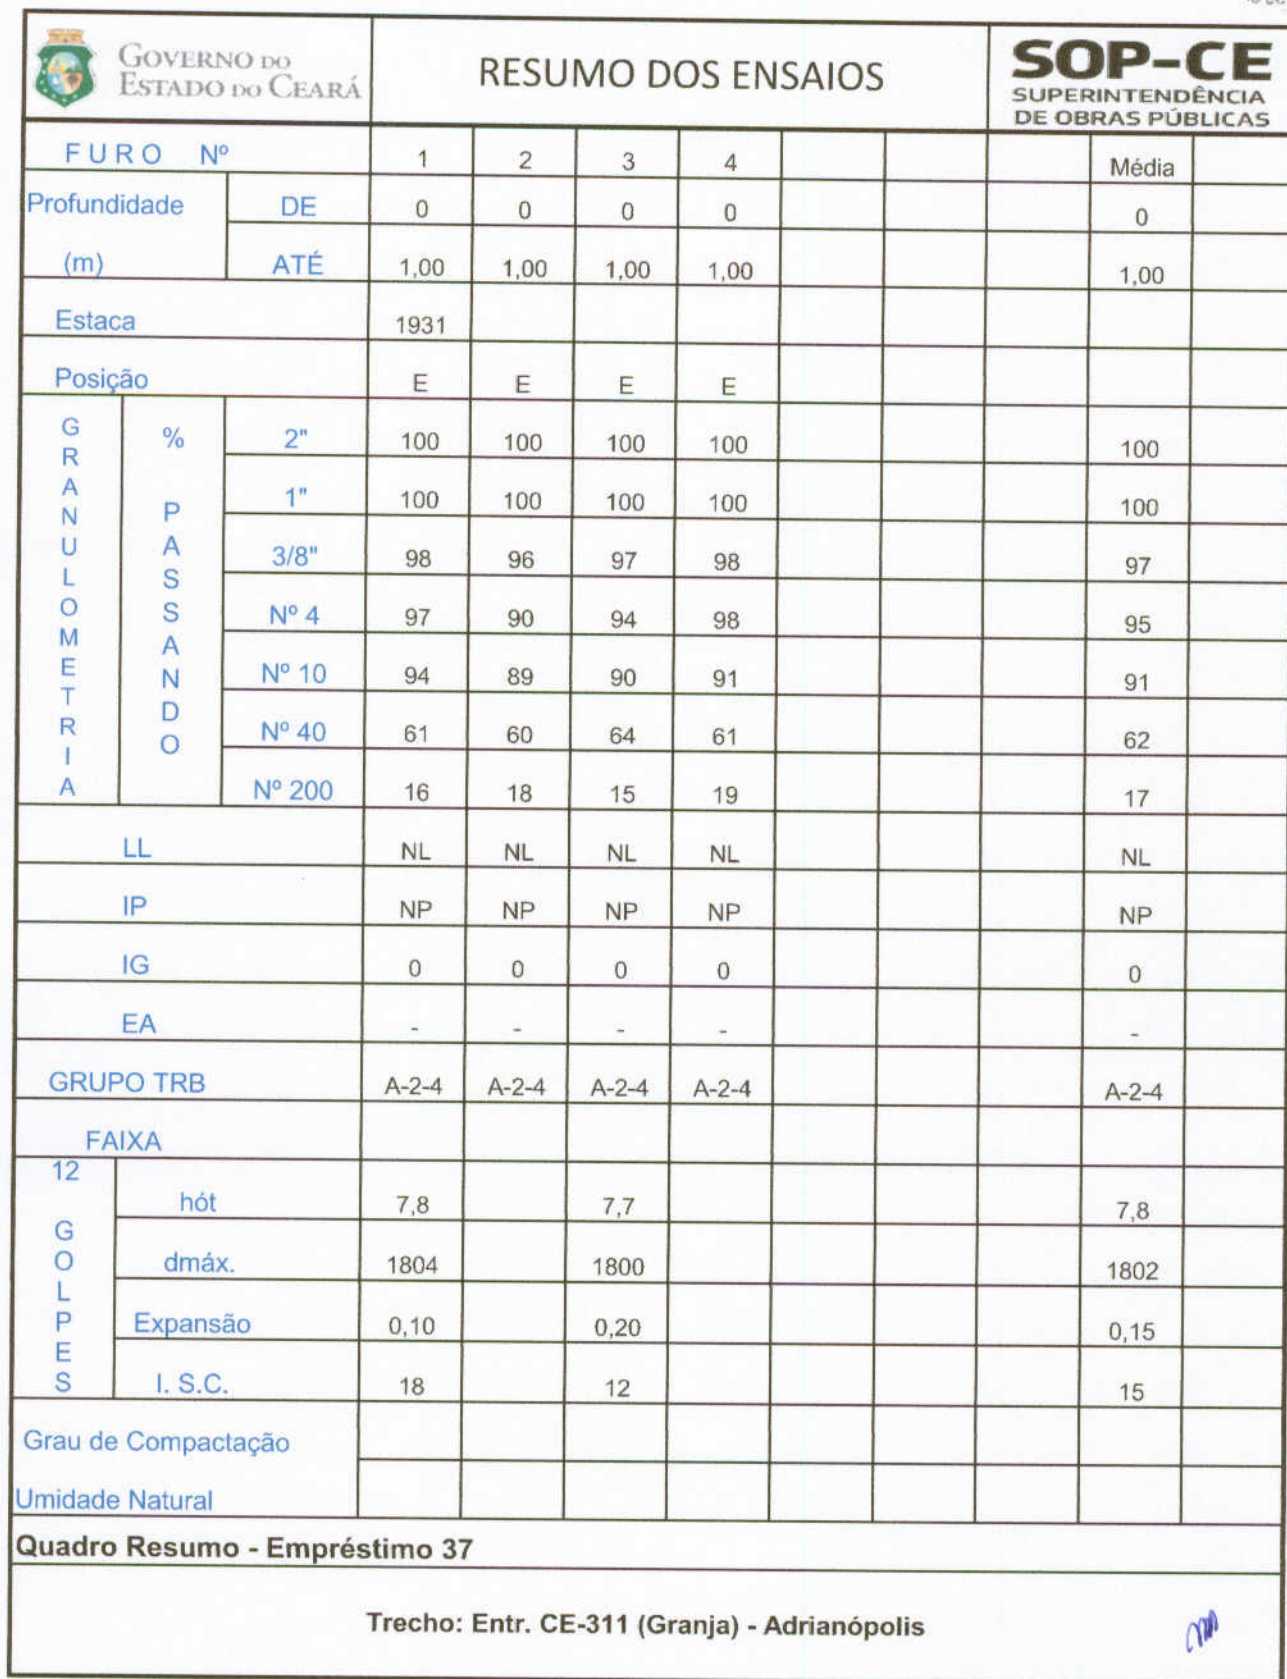 GOVERNO DO
ESTADO DO CEARÁ
RESUMO DOS ENSAIOS
SOP-CE
SUPERINTENDÊNCIA
DE OBRAS PÚBLICAS
FURO Nº 1 2 3 4 Média
Profundidade (m) DE 0 0 0 0 0
ATÉ 1,00 1,00 1,00 1,00 1,00
Estaca 1931
Posição E E E E
GRANULOMETRIA
% PASSANDO
2" 100 100 100 100 100
1" 100 100 100 100 100
3/8" 98 96 97 98 97
Nº 4 97 90 94 98 95
Nº 10 94 89 90 91 91
Nº 40 61 60 64 61 62
Nº 200 16 18 15 19 17
LL NL NL NL NL NL
IP NP NP NP NP NP
IG 0 0 0 0 0
EA - - - - -
GRUPO TRB A-2-4 A-2-4 A-2-4 A-2-4 A-2-4
FAIXA
12 GOLPES
hót 7,8 7,7 7,8
dmáx. 1804 1800 1802
Expansão 0,10 0,20 0,15
I. S.C. 18 12 15
Grau de Compactação
Umidade Natural
Quadro Resumo - Empréstimo 37
Trecho: Entr. CE-311 (Granja) - Adrianópolis